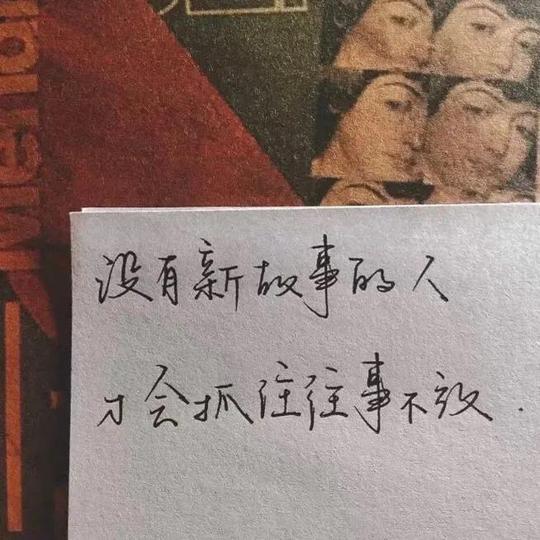 没有新故事的人
才会抓住往事不放.